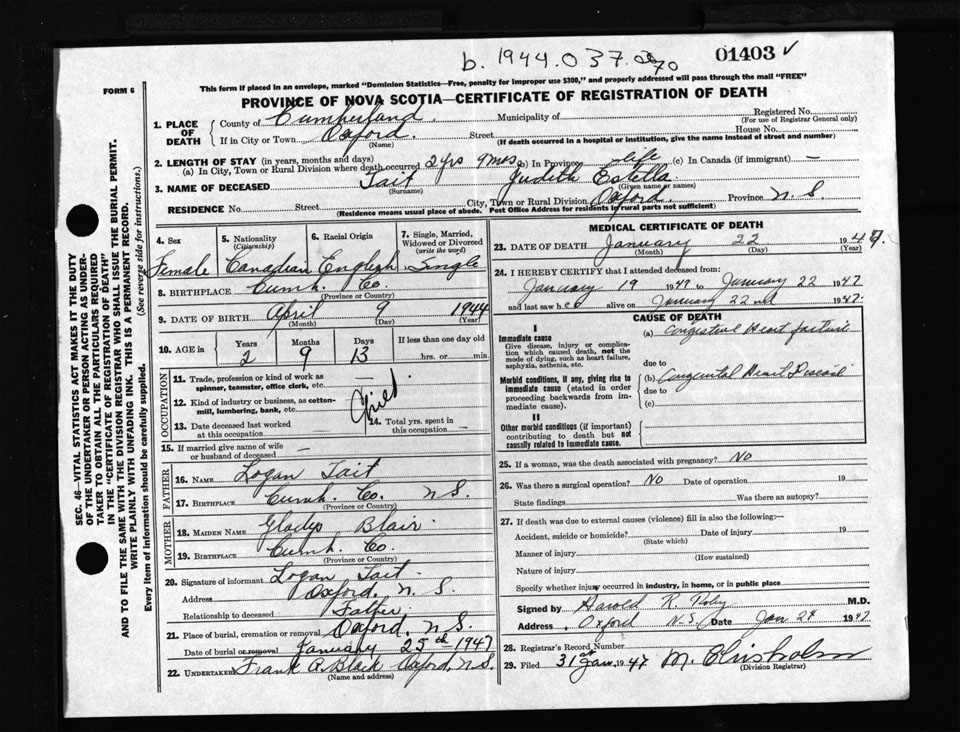 b. 1944.037.
01403 ✓
FORM 6
This form if placed in an envelope, marked "Dominion Statistics—Free, penalty for improper use $300," and properly addressed will pass through the mail "FREE"
PROVINCE OF NOVA SCOTIA—CERTIFICATE OF REGISTRATION OF DEATH
1. PLACE OF DEATH { County of Cumberland. Municipality of Registered No. (For use of Registrar General only)
If in City or Town Oxford. (Name) Street House No. (If death occurred in a hospital or institution, give the name instead of street and number)
2. LENGTH OF STAY (in years, months and days)
(a) In City, Town or Rural Division where death occurred 2 yrs 9 mos (b) In Province life (c) In Canada (if immigrant) —
3. NAME OF DECEASED Tait (Surname) Judith Estella (Given name or names)
RESIDENCE No. Street City, Town or Rural Division Oxford. Province N.S.
(Residence means usual place of abode. Post Office Address for residents in rural parts not sufficient)
4. Sex Female
5. Nationality (Citizenship) Canadian
6. Racial Origin English
7. Single, Married, Widowed or Divorced (write the word) Single
8. BIRTHPLACE Cumb. Co. (Province or Country)
9. DATE OF BIRTH April (Month) 9 (Day) 1944 (Year)
10. AGE in Years 2 Months 9 Days 13 If less than one day old hrs. or min.
OCCUPATION
11. Trade, profession or kind of work as spinner, teamster, office clerk, etc.
12. Kind of industry or business, as cotton-mill, lumbering, bank, etc. Child
13. Date deceased last worked at this occupation —
14. Total yrs. spent in this occupation —
15. If married give name of wife or husband of deceased —
FATHER
16. NAME Logan Tait
17. BIRTHPLACE Cumb. Co. N.S. (Province or Country)
MOTHER
18. MAIDEN NAME Gladys Blair
19. BIRTHPLACE Cumb. Co. (Province or Country)
20. Signature of informant Logan Tait.
Address Oxford, N.S.
Relationship to deceased Father
21. Place of burial, cremation or removal Oxford, N.S.
Date of burial or removal January 25th 1947
22. UNDERTAKER Frank P. Black Oxford, N.S. (Name and address)
MEDICAL CERTIFICATE OF DEATH
23. DATE OF DEATH January (Month) 22 (Day) 1947. (Year)
24. I HEREBY CERTIFY that I attended deceased from:
January 19 1947 to January 22 1947
and last saw her alive on January 22nd 1947.
CAUSE OF DEATH
I
Immediate cause
Give disease, injury or complication which caused death, not the mode of dying, such as heart failure, asphyxia, asthenia, etc.
(a) Congestive Heart failure
due to
Morbid conditions, if any, giving rise to immediate cause (stated in order proceeding backwards from immediate cause).
(b) Congenital Heart Disease
due to
(c)
II
Other morbid conditions (if important) contributing to death but not causally related to immediate cause.
25. If a woman, was the death associated with pregnancy? No
26. Was there a surgical operation? No Date of operation 19
State findings Was there an autopsy?
27. If death was due to external causes (violence) fill in also the following:—
Accident, suicide or homicide? (State which) Date of injury 19
Manner of injury (How sustained)
Nature of injury
Specify whether injury occurred in industry, in home, or in public place
Signed by Harold R. M.D.
Address Oxford N.S. Date Jan 24 1947
28. Registrar's Record Number
29. Filed 31st Jan. 1947 M. Chisholm (Division Registrar)
SEC. 46—VITAL STATISTICS ACT MAKES IT THE DUTY
OF THE UNDERTAKER OR PERSON ACTING AS UNDERTAKER TO OBTAIN ALL THE PARTICULARS REQUIRED
IN THE "CERTIFICATE OF REGISTRATION OF DEATH"
AND TO FILE THE SAME WITH THE DIVISION REGISTRAR WHO SHALL ISSUE THE BURIAL PERMIT.
WRITE PLAINLY WITH UNFADING INK. THIS IS A PERMANENT RECORD.
Every item of information should be carefully supplied. (See reverse side for instructions.)